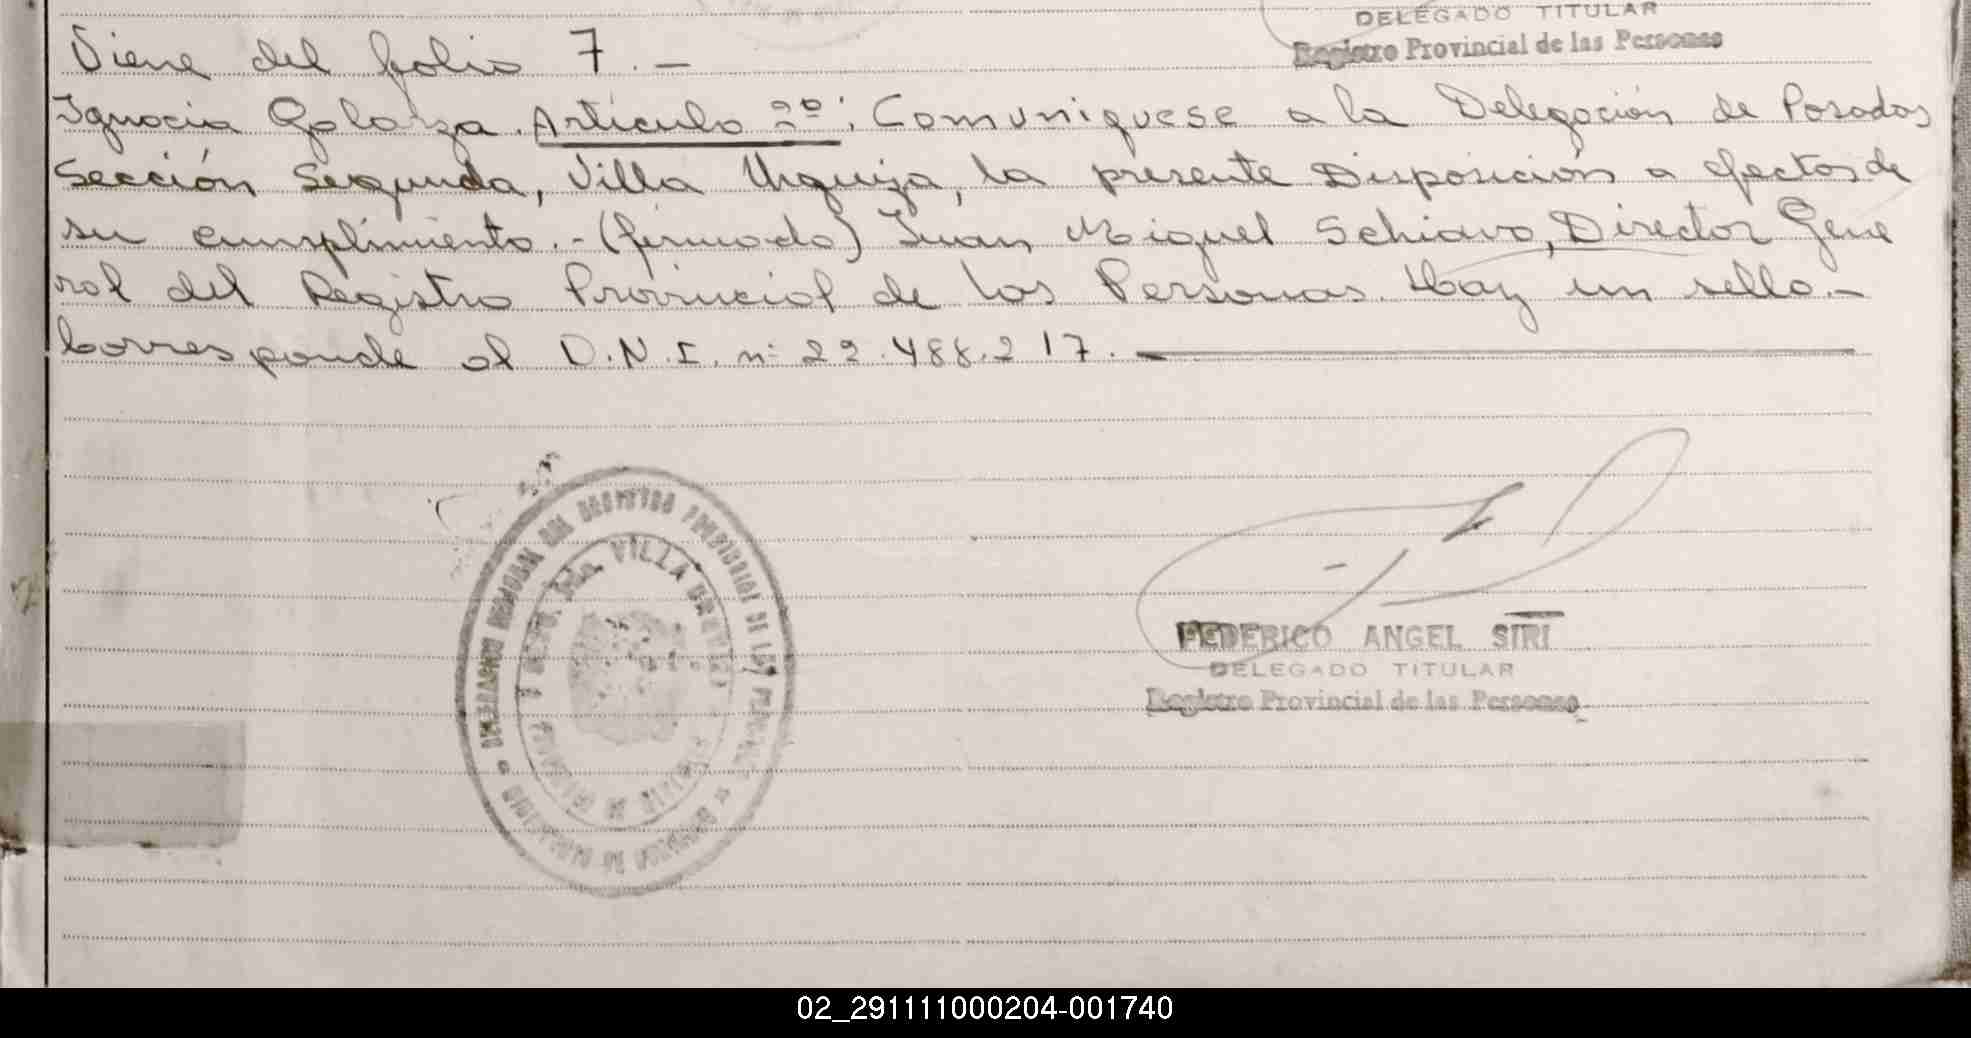 DELEGADO TITULAR
Registro Provincial de las Personas
Viene del folio 7.-
Ignacia Galarza. Artículo 2º: Comuniquese a la Delegación de Posadas
Sección Segunda, Villa Urquiza, la presente Disposición a efectos de
su cumplimiento.-(firmado) Juan Miguel Schiavo, Director Gene
ral del Registro Provincial de las Personas. Hay un sello.-
Corresponde al D.N.I. nº 22.488.217.-
VILLA URQUIZA
FEDERICO ANGEL SIRI
DELEGADO TITULAR
Registro Provincial de las Personas
02_291111000204-001740